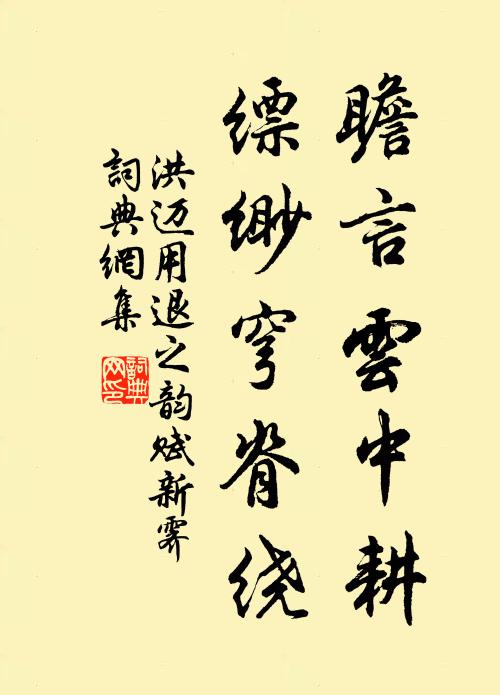 瞻言雲中耕
缥缈穹脊绕
洪迈用退之韵赋新霁
詞典網集
詞典
网印